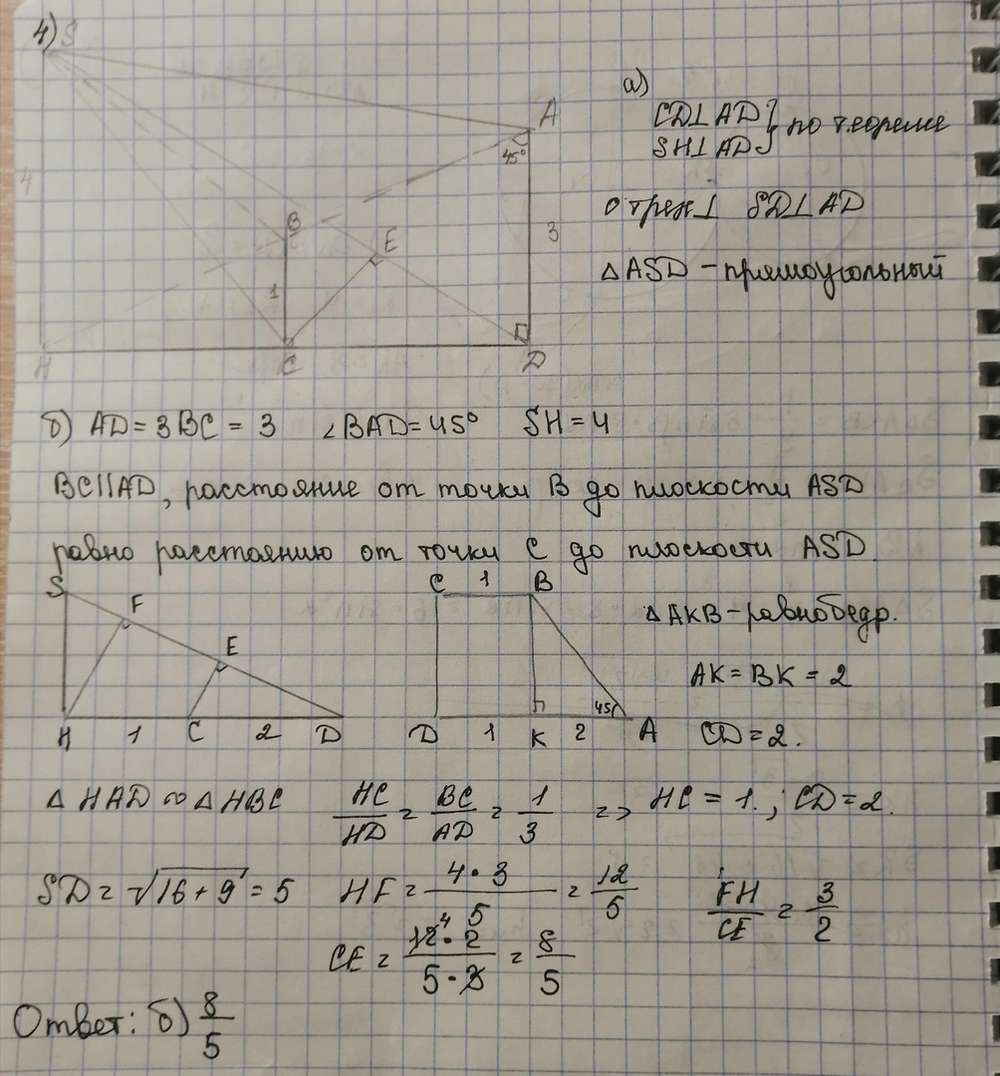 4) S
A
45°
4
3
B
E
1
H
C
D
а)
CD⊥AD } по теореме
SH⊥AD
о трех⊥ SD⊥AD
△ASD - прямоугольный
б) AD = 3BC = 3 ∠BAD = 45° SH = 4
BC||AD, расстояние от точки B до плоскости ASD
равно расстоянию от точки C до плоскости ASD.
S
F
E
H 1 C 2 D
C 1 B
45°
D 1 K 2 A
△AKB - равнобедр.
AK = BK = 2
CD = 2.
△HAD ∾ △HBC HC/HD = BC/AD = 1/3 => HC = 1. ; CD = 2.
SD = √(16+9) = 5 HF = (4·3)/5 = 12/5 FH/CE = 3/2
CE = (12⁴·2)/(5·3) = 8/5
Ответ: б) 8/5